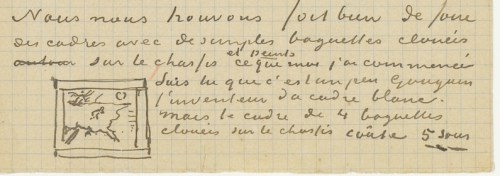 Nous nous trouvons fort bien de faire
des cadres avec de simples baguettes clouées
et peints
autour sur le chassis ce que moi j'ai commencé
Sais tu que c'est un peu Gauguin
l'inventeur du cadre blanc.
Mais le cadre de 4 baguettes
clouées sur le chassis coûte 5 sous